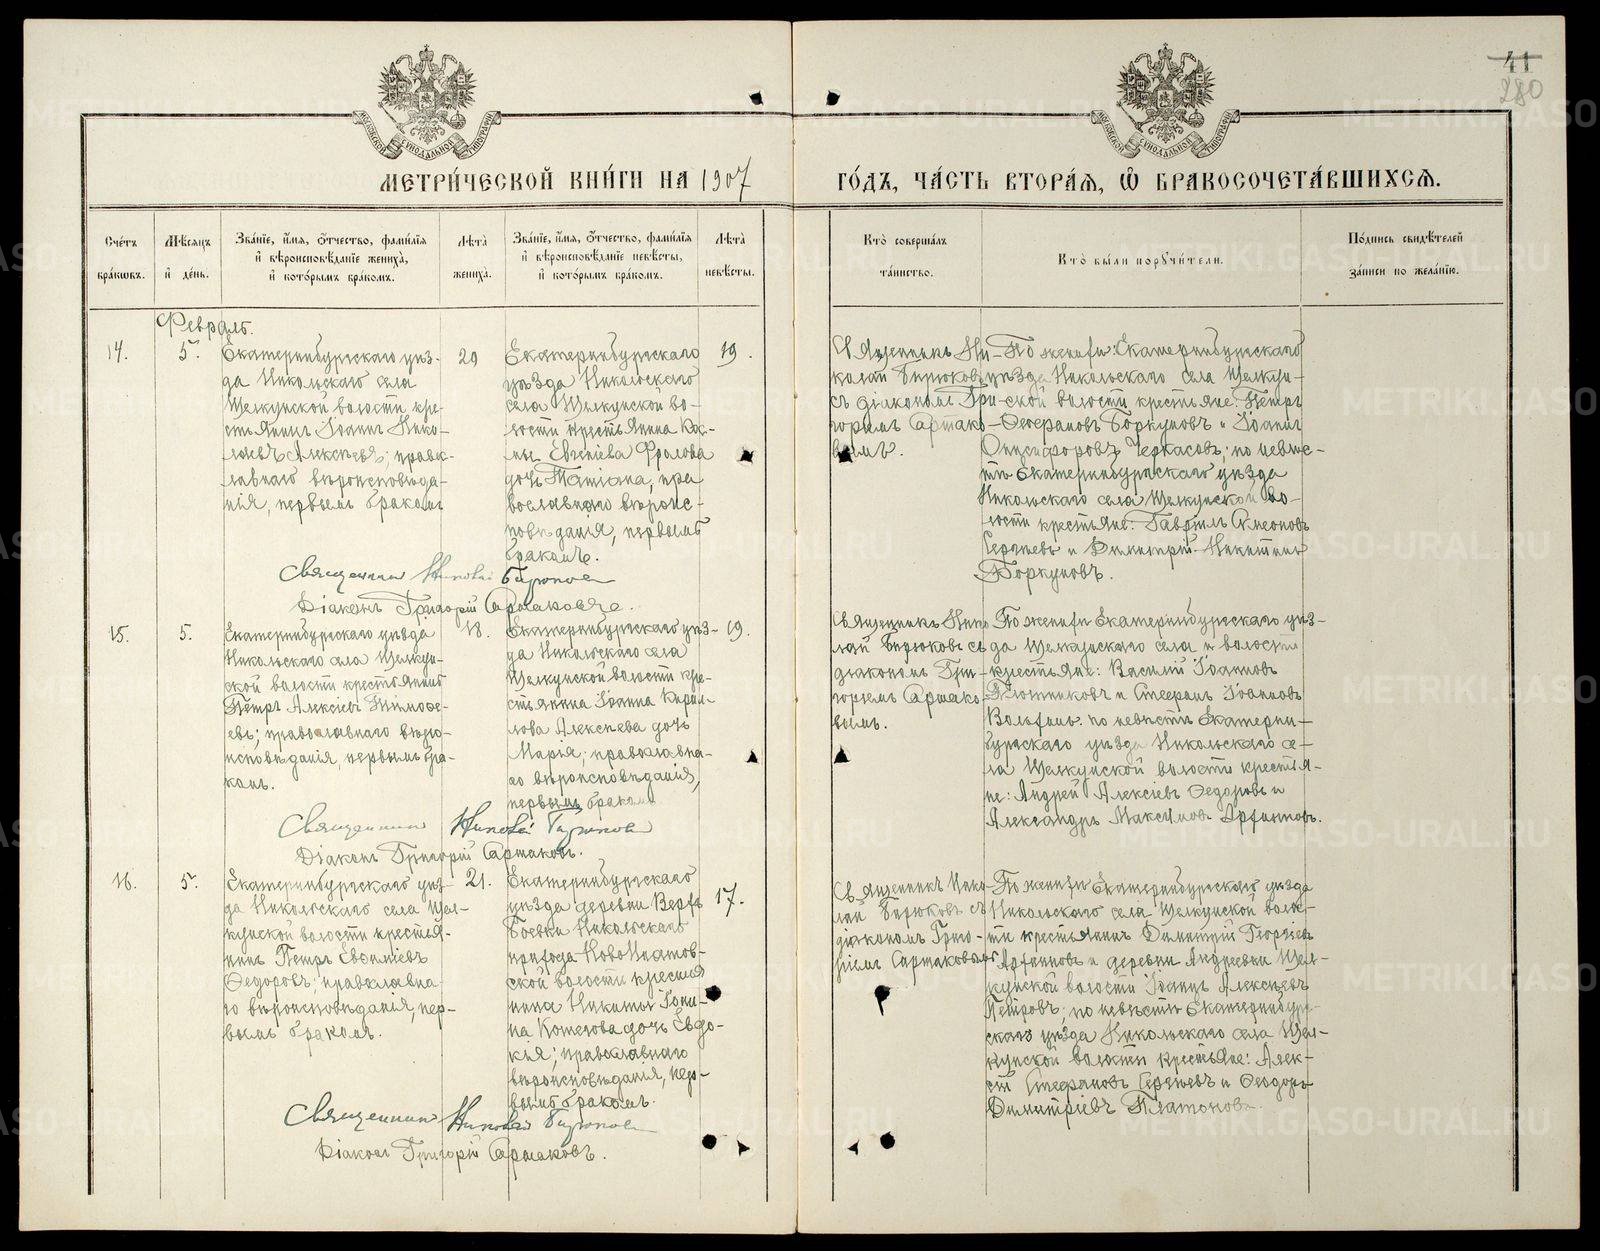 41
280
МЕТРИ́ЧЕСКОЙ КНИ́ГИ НА 1907
ГО́ДЪ, ЧА́СТЬ ВТОРА́Я, Ѡ҆ БРАКОСОЧЕТА́ВШИХСЯ.
Сче́тъ браковъ.
Мѣ́сяцъ и҆ де́нь.
Зва́нїе, и҆́мя, ѻ҆́тчество, фами́лїя и҆ вѣроисповѣ́данїе жениха̀, и҆ кото́рымъ бра́комъ.
Лѣ́та̀ жениха̀.
Зва́нїе, и҆́мя, ѻ҆́тчество, фами́лїя и҆ вѣроисповѣ́данїе невѣ́сты, и҆ кото́рымъ бра́комъ.
Лѣ́та̀ невѣ́сты.
Кто̀ соверша́лъ та́инство.
Кто̀ бы́ли поручи́тели.
По́дпись свидѣ́телей за́писи по жела́нїю.
Февраль.
14.
5.
Екатеринбургскаго уѣз-
да Никольскаго села
Щелкунской волости кре-
стьянинъ Іоаннъ Нико-
лаевъ Алексѣевъ; право-
славнаго вѣроисповѣда-
нія, первымъ бракомъ
29
Екатеринбургскаго
уѣзда Никольскаго
села Щелкунской во-
лости крестьянина Кос-
мы Евгеніева Фролова
дочь Татіана, пра
вославнаго вѣроис-
повѣданія, первымъ
бракомъ.
19.
Священникъ Ни-
колай Бирюковъ
съ діакономъ Гри-
горіемъ Сармако-
вымъ.
По женихѣ: Екатеринбургскаго
уѣзда Никольскаго села Щелкун-
ской волости крестьяне: Петръ
Стефановъ Боркуновъ и Іоаннъ
Онисифоровъ Черкасовъ; по невѣс-
тѣ Екатеринбургскаго уѣзда
Никольскаго села Щелкунской во-
лости крестьяне: Гавріилъ Симеоновъ
Сергѣевъ и Димитрій Никитинъ
Боркуновъ.
Священникъ Николай Бирюковъ
Діаконъ Григорій Сармаковъ.
15.
5.
Екатеринбургскаго уѣзда
Никольскаго села Щелкун-
ской волости крестьянинъ
Петръ Алексіевъ Тимофе-
евъ; православнаго вѣро-
исповѣданія, первымъ бра-
комъ.
18.
Екатеринбургскаго уѣз-
да Никольскаго села
Щелкунской волости кре-
стьянина Іоанна Кирил-
лова Алексѣева дочь
Марія; православна-
го вѣроисповѣданія,
первымъ бракомъ
19.
Священникъ Нико
лай Бирюковъ съ
діакономъ Гри-
горіемъ Сармако-
вымъ.
По женихѣ Екатеринбургскаго уѣз-
да Щелкунскаго села и волости
крестьяне: Василій Іоанновъ
Плотниковъ и Стефанъ Іоанновъ
по невѣстѣ Екатерин-
бургскаго уѣзда Никольскаго се-
ла Щелкунской волости крестья-
не: Андрей Алексіевъ Ѳедоровъ и
Александръ Максимовъ Арфинтовъ.
Священникъ Николай Бирюковъ
Діаконъ Григорій Сармаковъ.
16.
5.
Екатеринбургскаго уѣз-
да Никольскаго села Щел-
кунской волости крестья-
нинъ Петръ Евѳиміевъ
Ѳедоровъ; православна-
го вѣроисповѣданія, пер-
вымъ бракомъ.
21.
Екатеринбургскаго
уѣзда деревни Верхъ
Боевки Никольскаго
прихода Ново-Ипатов-
ской волости крестья
нина Никиты Іони-
на Котегова дочь Евдо-
кія; православнаго
вѣроисповѣданія, пер-
вымъ бракомъ.
17.
Священникъ Нико-
лай Бирюковъ съ
діакономъ Григо-
ріемъ Сармаковымъ
По женихѣ Екатеринбургскаго уѣзда
Никольскаго села Щелкунской волос-
ти крестьянинъ Димитрій Георгіевъ
Арфинтовъ и деревни Андреевки Щел-
кунской волости Іоаннъ Алексѣевъ
Петровъ; по невѣстѣ Екатеринбург-
скаго уѣзда Никольскаго села Щел-
кунской волости крестьяне: Алек-
сій Стефановъ Сергѣевъ и Ѳеодоръ
Димитріевъ Платоновъ.
Священникъ Николай Бирюковъ
Діаконъ Григорій Сармаковъ.